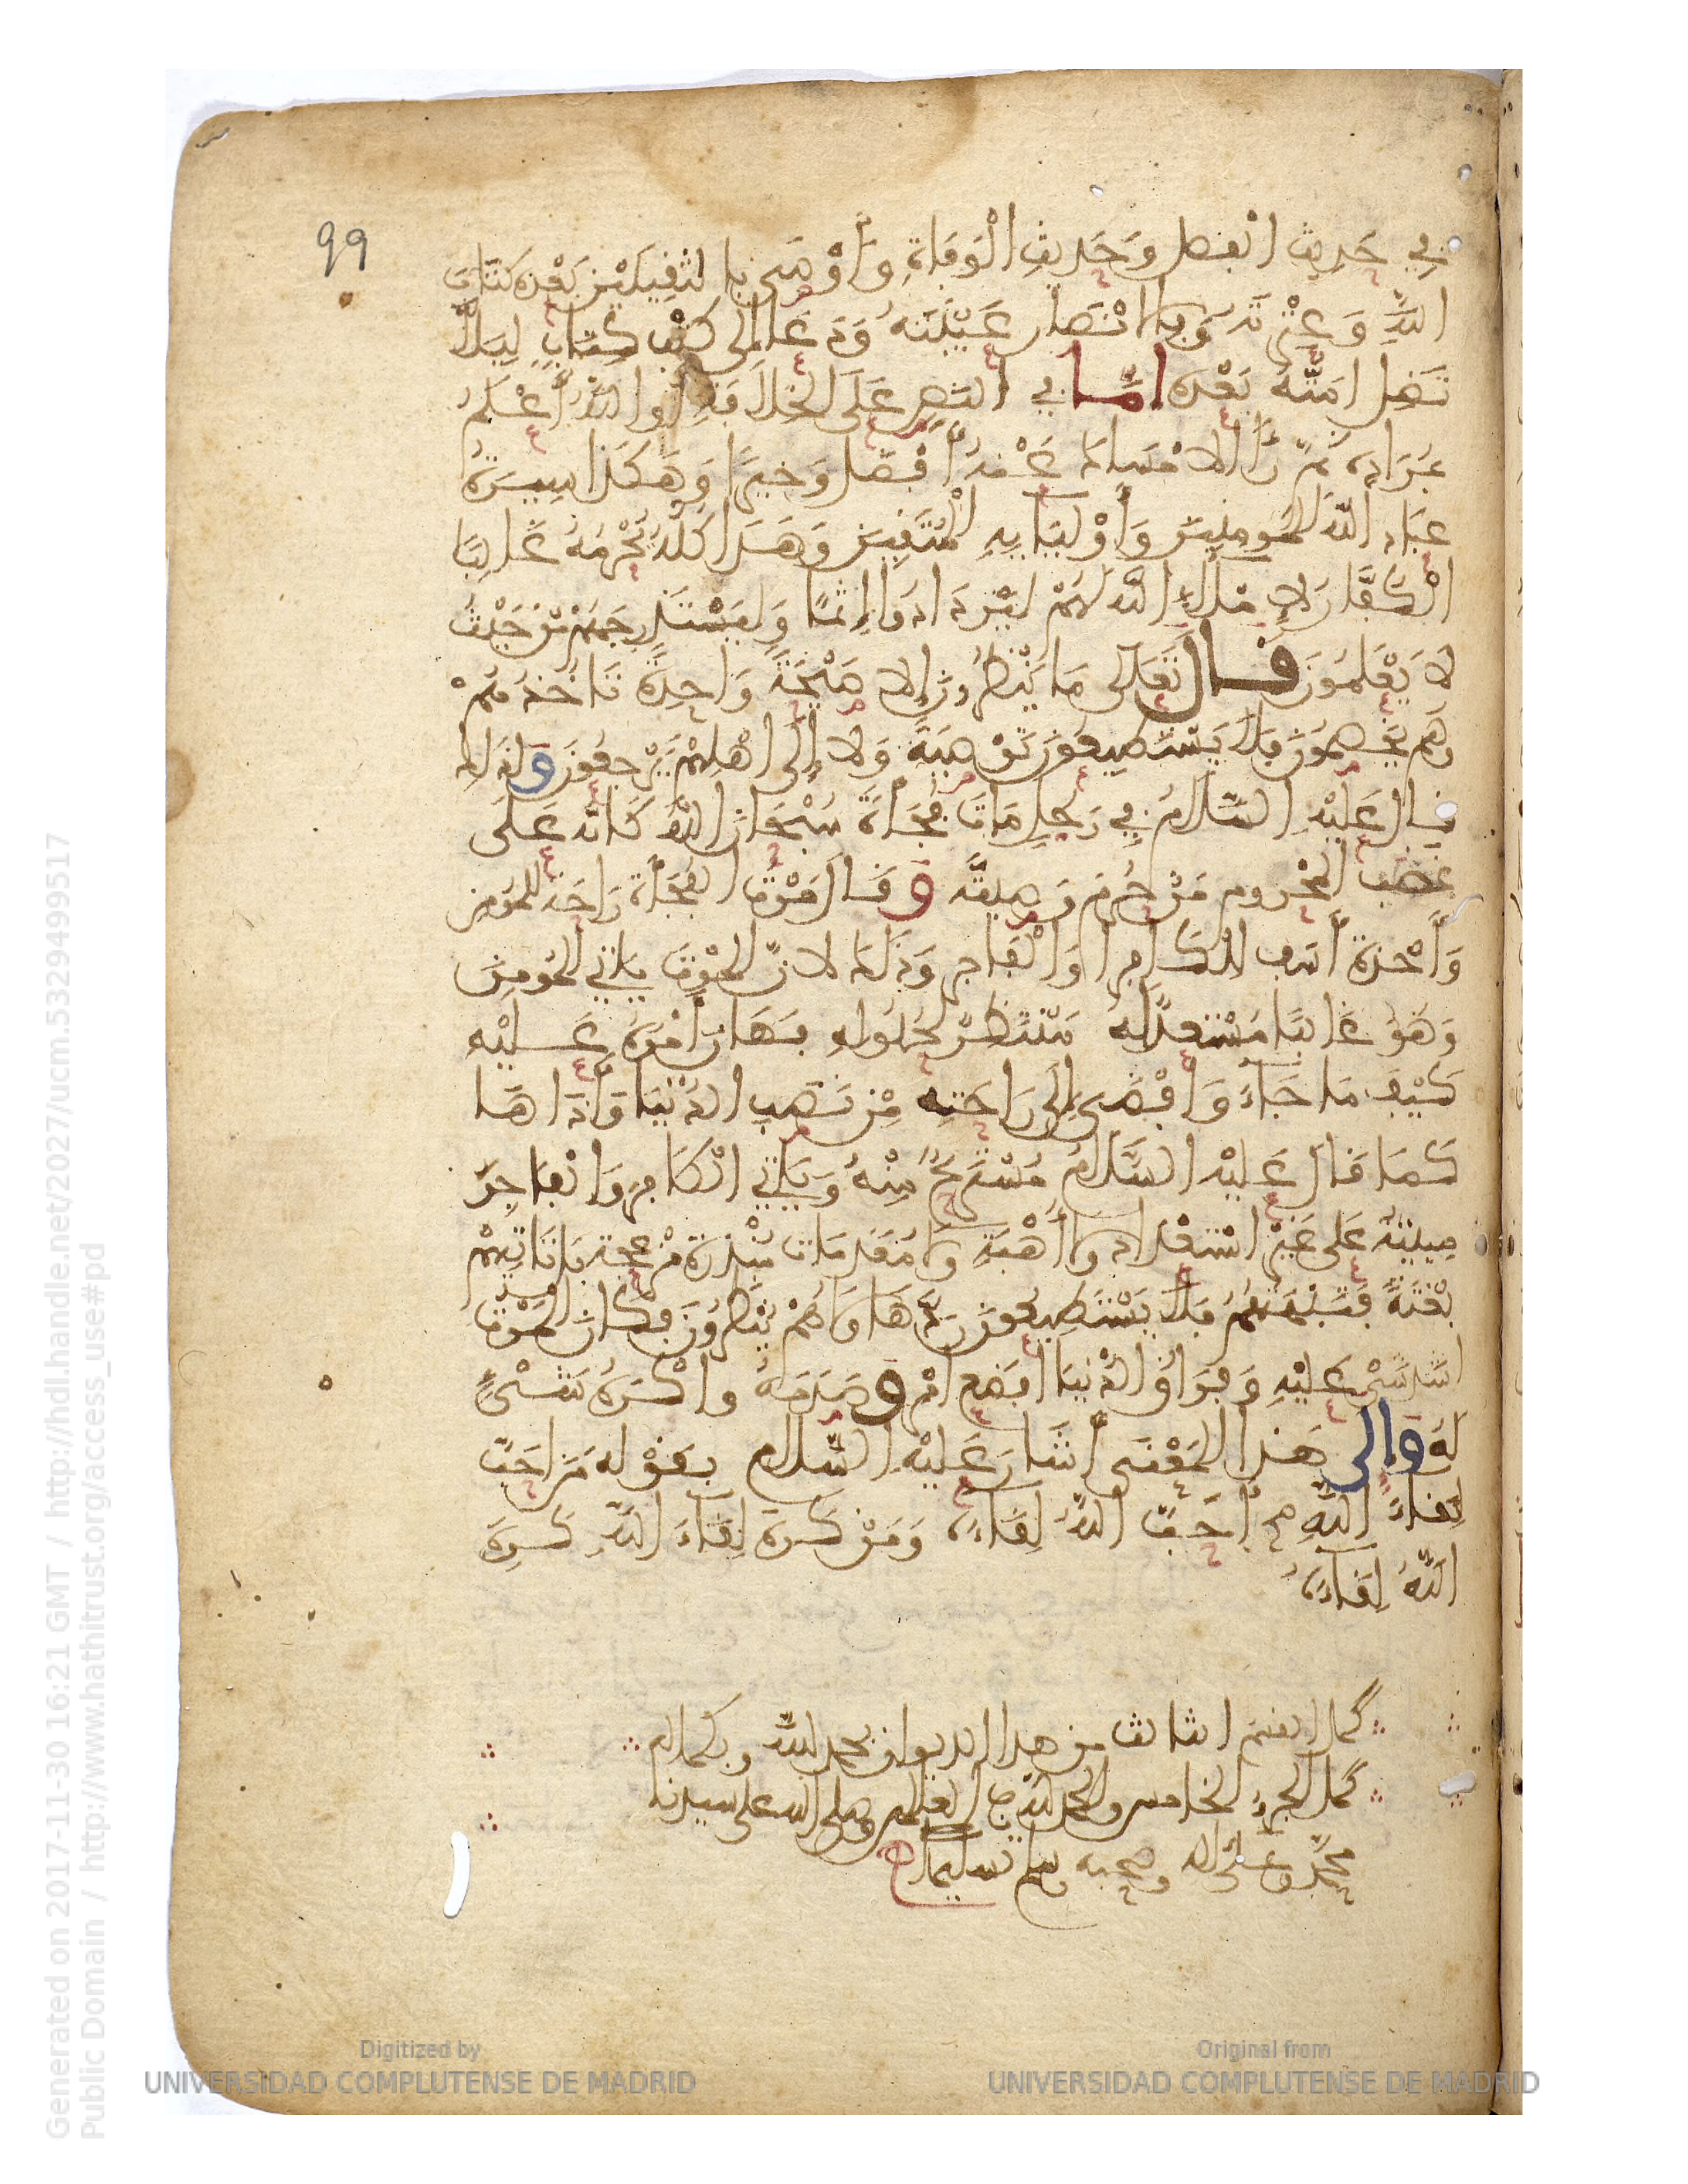 99
في حَدِيثِ الْفضل وَحَدِيثِ الْوَفَاةِ وَأَوْصَى بالثقِيلَيْنِ بَعْدَهُ كتَابِ
اللَّهِ وَعِتْرَتِهِ وَبِالانْصَارِ عَيْبَتِهِ وَدَعَا إلى كَتْبِ كِتَابٍ لِيَلاَّ
تَضِل امَتُّهُ بَعْدَهُ امَّا في النصِ عَلَى الخِلاَفَةِ أو اللَّهُ أَعْلَمُ
بمُرَادِهِ ثُمَّ رَأَى الامْسَاك عَنْهُ أفْضَل وَخَيْرًا وَهَكَذَا سِيرَةُ
عِبَادِ اللَّهِ المُومِنِينَ وَأَوْلِيَايِهِ الْمُتَّقِينَ وَهَذَا كلُّهُ يُحْرَمُهُ غَالِبًا
الْكُفَّار لإِمْلاَءِ اللَّهِ لَهُمْ لِيَزْدَادُوا إِثْمًا وَلِيَسْتَدْرِجَهُمْ مِنْ حَيْثُ
لاَ يَعْلَمُونَ قال تَعَالَى مَا يَنْظُرُونَ إِلا صَيْحَةً وَاحِدَةً تَاخُذُهُمْ
وَهُم يَخِصِّمُونَ فَلاَ يَسْتَطِيعُونَ تَوْصِيَةً وَلا إِلَى أَهْلِهِمْ يَرْجِعُونَ وَلِذَلِكَ
قال عَلَيْهِ السَّلاَمُ فِي رَجُلٍ مَاتَ فُجَأَةً سُبْحَانَ اللَّهِ كَأنّهُ عَلَى
غضب المَحْرُوم مَنْ حُرِمَ وَصِيَّتَه وَقَالَ مَوْتُ الفُجَأَةِ رَاحَة لِلمُومِنِ
وَأَخْذَةُ أَسَف للكَافِرِ أَوَالْفَاجِرِ وَذَلكَ لانّ المَوْتَ يَاتِي المُومِنَ
وَهُوَ غَالِبًا مُسْتَعِدٌّ لَهُ مُنْتَظِرٌ لحُلُولِهِ فَهَانَ أَمْرُهُ عَلَيْه
كَيْفَ مَا جَاءَ وَأفْضَى إِلَى رَاحَتِهِ مِنْ نَصَبِ الدُّنْيَا وَأَذَاهَا
كمَا قال عَلَيْهِ السَّلاَمُ مُسْتَرِيحٌ وَمُسْتَرَاحٌ مِنْهُ وَيَاتِي الْكَافِرَ وَالْفَاجِرَ
مِيتَتُهُ عَلَى غَيْرِ اسْتِعْدَادٍ وَلاَ أُهْبَةٍ وَلا مُقَدِّمَاتٍ مُنْذِرَةٍ مُزْعِجَة بَل تَاتِيهِمْ
بَغْتَةً فَتَبْهَتُهُمْ فَلاَ يَسْتَطِيعُونَ رَدَّهَا وَلاَ هُمْ يُنْظَرُونَ فَكَانَ المَوْتُ
أشَدّ شَىْءٍ عَلَيْهِ وَفِرَاقُ الدُّنْيَا افظعَ أمْرٍ وَصَدَمَهُ وَاكْرَهَ شَىْءٍ
لَهُ وَالى هَذَا المَعْنَى أشَارَ عَلَيْهِ السَّلاَمُ بِقَوْلِهِ مَنْ احَبَّ
لِقَاءَ اللَّهِ أَحَبَّ اللَّهُ لِقَاءَهُ وَمَنْ كرِهَ لِقَاءَ اللَّهِ كرِهَ
اللَّهُ لِقَاءَهُ
كمل القسم الثالث من هذا الديوان بحمد الله وبكماله
كمل الجزء الخامس والحمد لله رب العلمين وصلى الله على سيدنا
محمد وعلى اله وصحبه وسلم تسليما